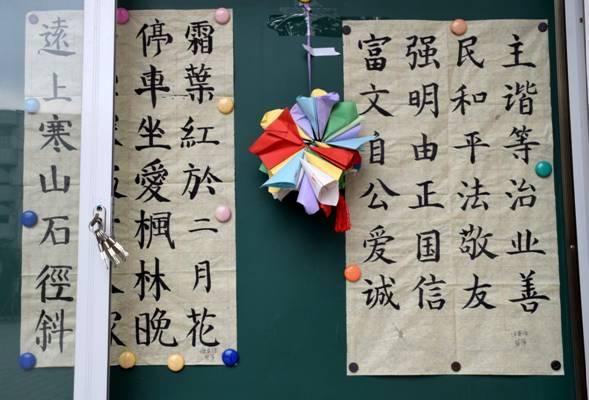 遠上寒山石徑斜
停車坐愛楓林晚
霜葉紅於二月花
富强民主
文明和谐
自由平等
公正法治
爱国敬业
诚信友善